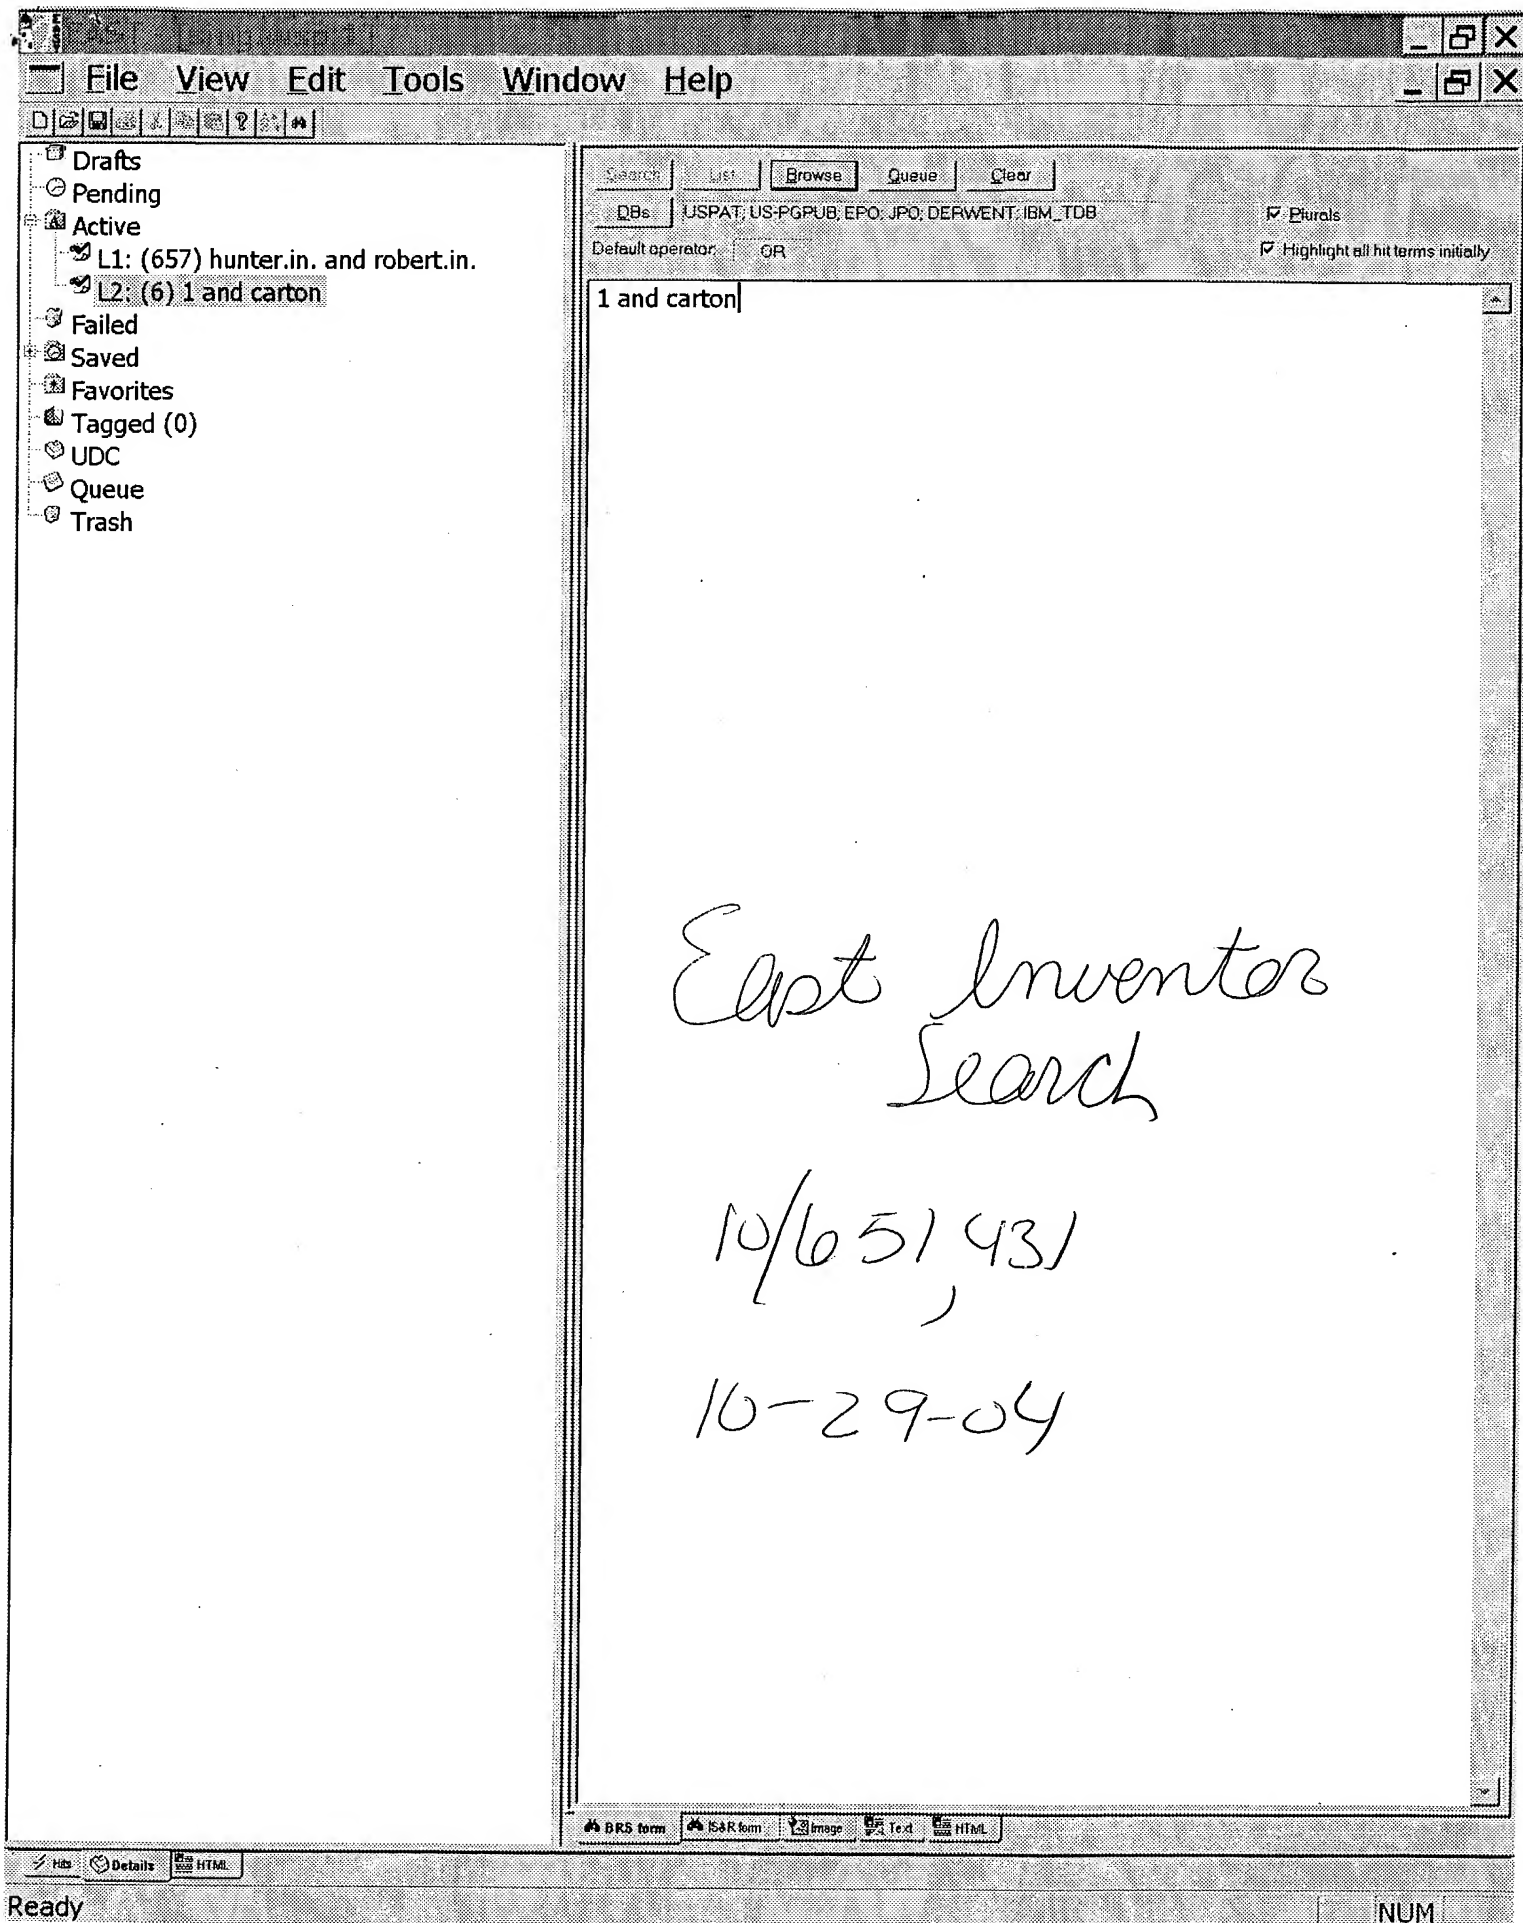 File View Edit Tools Window Help
Drafts
Pending
Active
L1: (657) hunter.in. and robert.in.
L2: (6) 1 and carton
Failed
Saved
Favorites
Tagged (0)
UDC
Queue
Trash
Search List Browse Queue Clear
DBs USPAT; US-PGPUB; EPO; JPO; DERWENT; IBM_TDB Plurals
Default operator: OR Highlight all hit terms initially
1 and carton
East Inventor
Search
10/651,431
10-29-04
BRS form IS&R form Image Text HTML
Hits Details HTML
Ready NUM